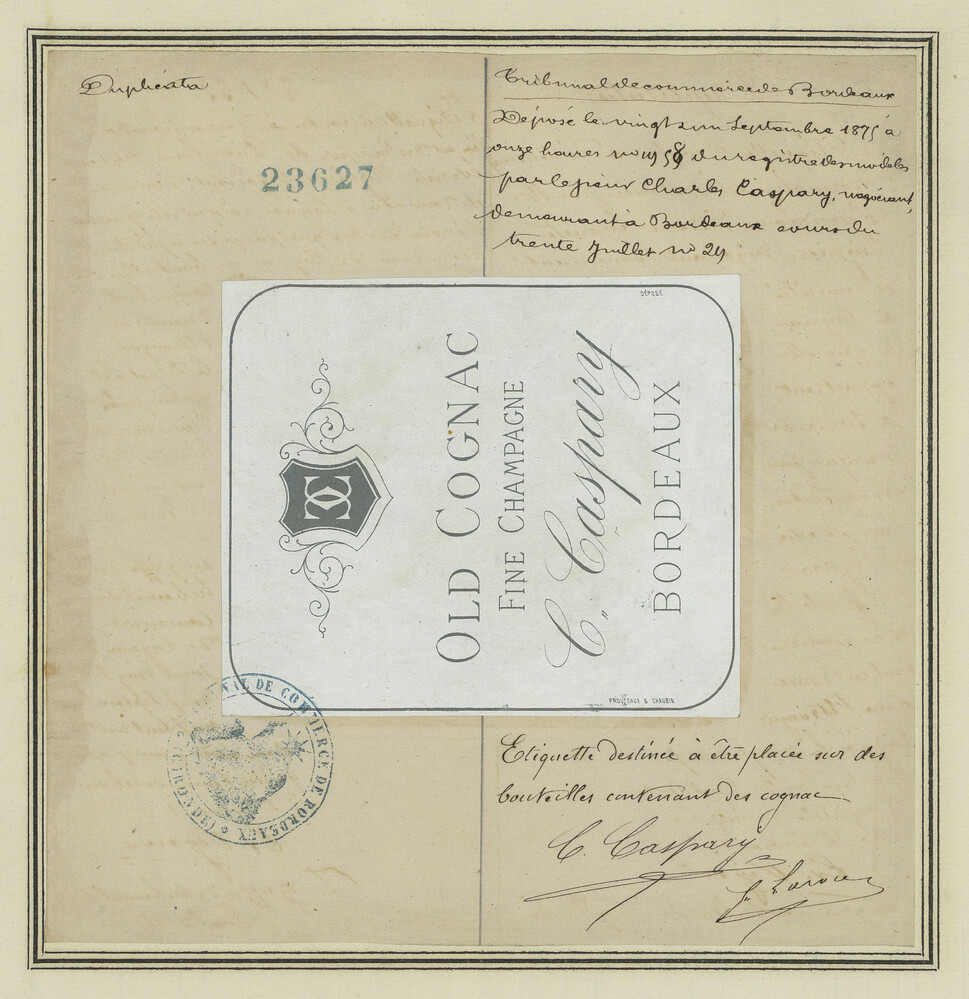 Duplicata
23627
Tribunal de commerce de Bordeaux
Déposé le vingt un Septembre 1875 à
onze heures no 1958 du registre des modèles
par le sieur Charles Caspary, négociant,
demeurant à Bordeaux cours du
trente Juillet no 24
DÉPOSÉ
OLD COGNAC
FINE CHAMPAGNE
C. Caspary
BORDEAUX
PROUTEAUX & CHAUBIN
NAL DE COMMERCE DE BORDEAUX (GIRONDE)
Etiquette destinée à être placée sur des
bouteilles contenant des cognac
C. Caspary